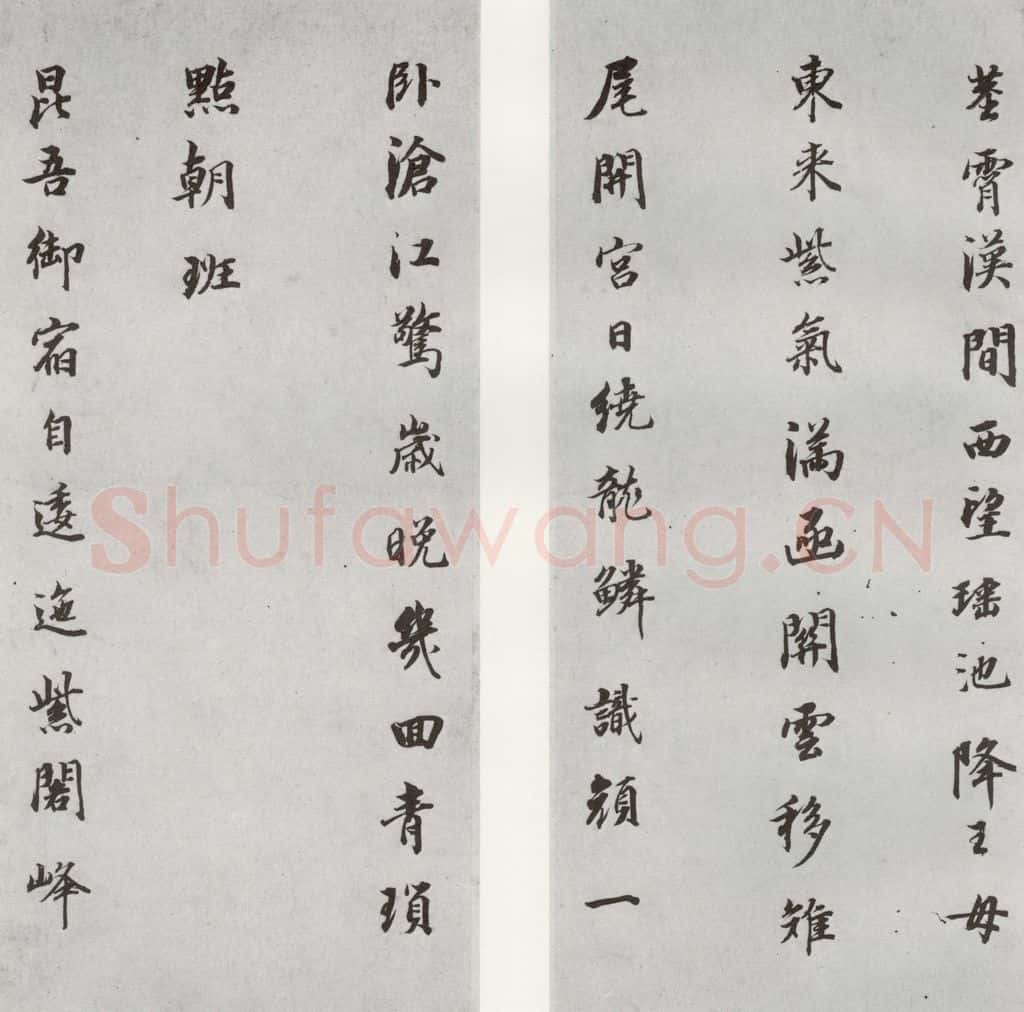 莖霄漢間西望瑤池降王母
東来紫氣滿函關雲移雉
尾開宮日繞龍鱗識顏一
卧滄江驚歲晚幾回青瑣
點朝班
昆吾御宿自逶迤紫閣峰
Shufawang.CN